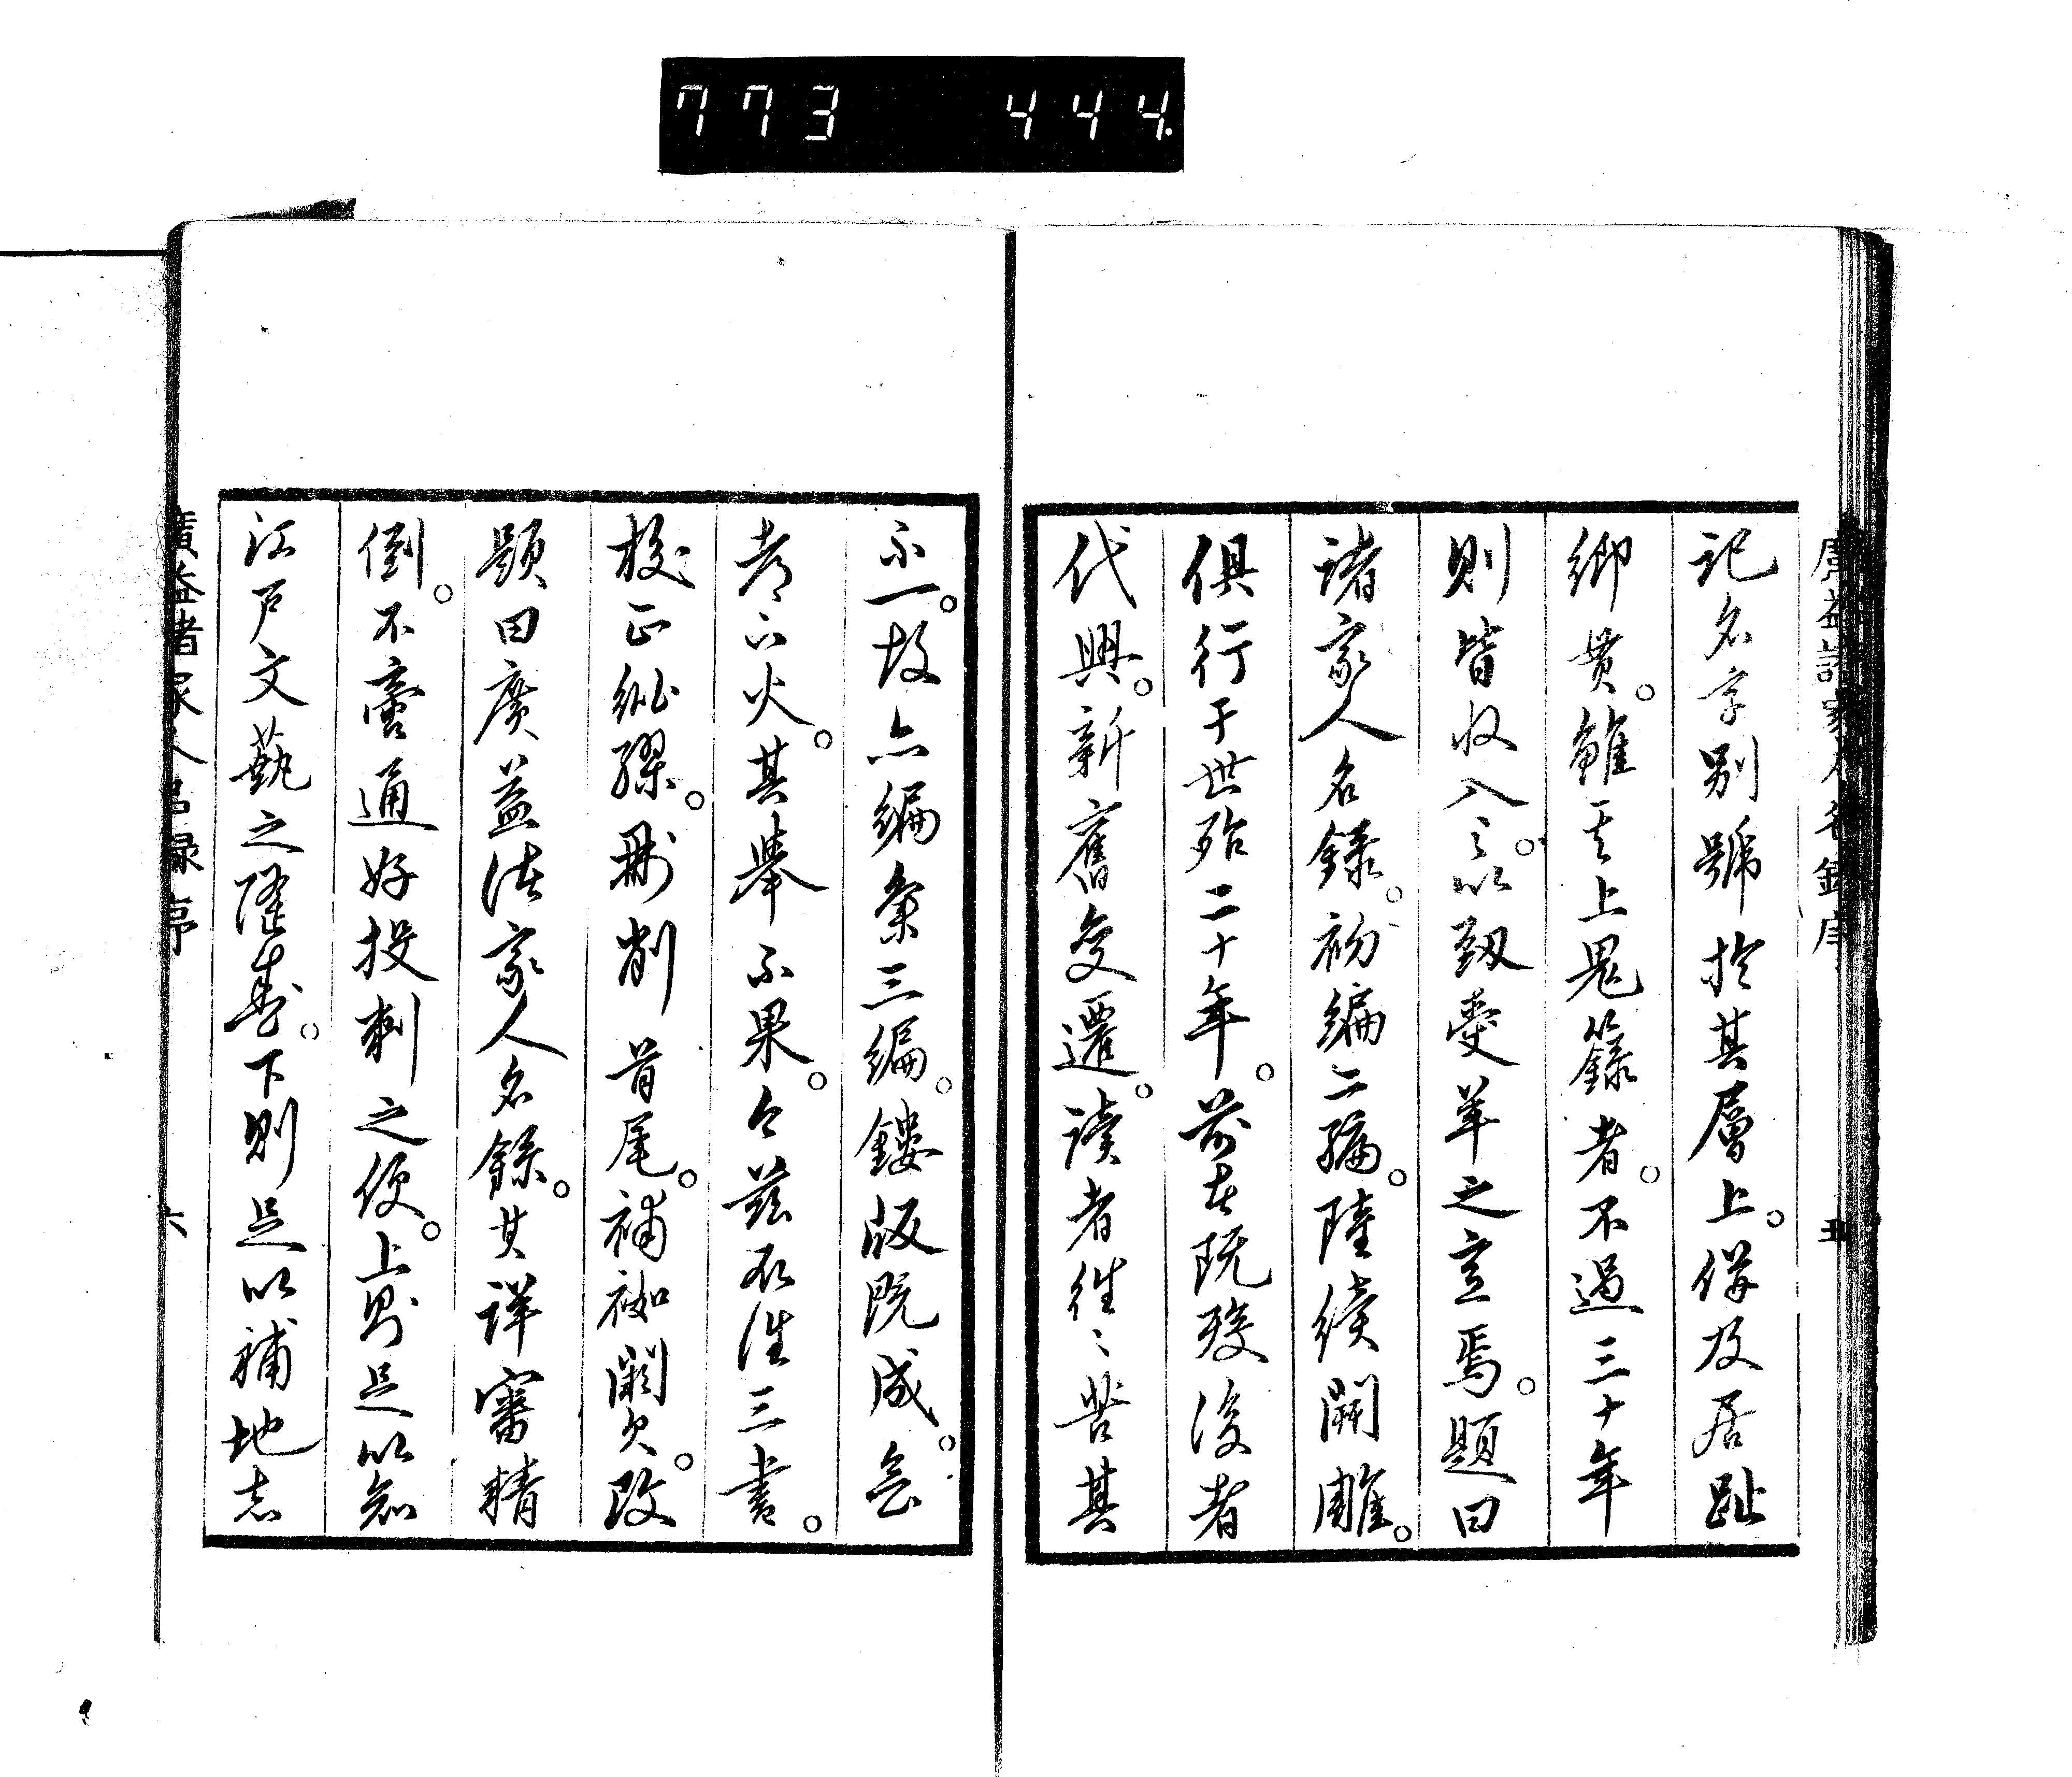 773 444
廣益諸家人名録序 五
記名字別號於其層上。併及居趾
鄉貫。雖其上鬼籙者。不過三十年
則皆收入之。以致愛羊之意焉。題曰
諸家人名錄。初編二編。陸續開雕。
俱行于世殆二十年。前者既歿後者
代興。新舊變遷。讀者往〻苦其
不一。故亦編集三編。鏤版既成。忽
者六火。其舉不果。今茲取
三書。
校正紕繆。刪削首尾。補袽闕欠。改
題曰廣益諸家人名錄。其詳審精
到。不啻通好投刺之便。上則足以知
江戸文藝之隆盛。下則足以補地志
廣益諸家人名録序 六